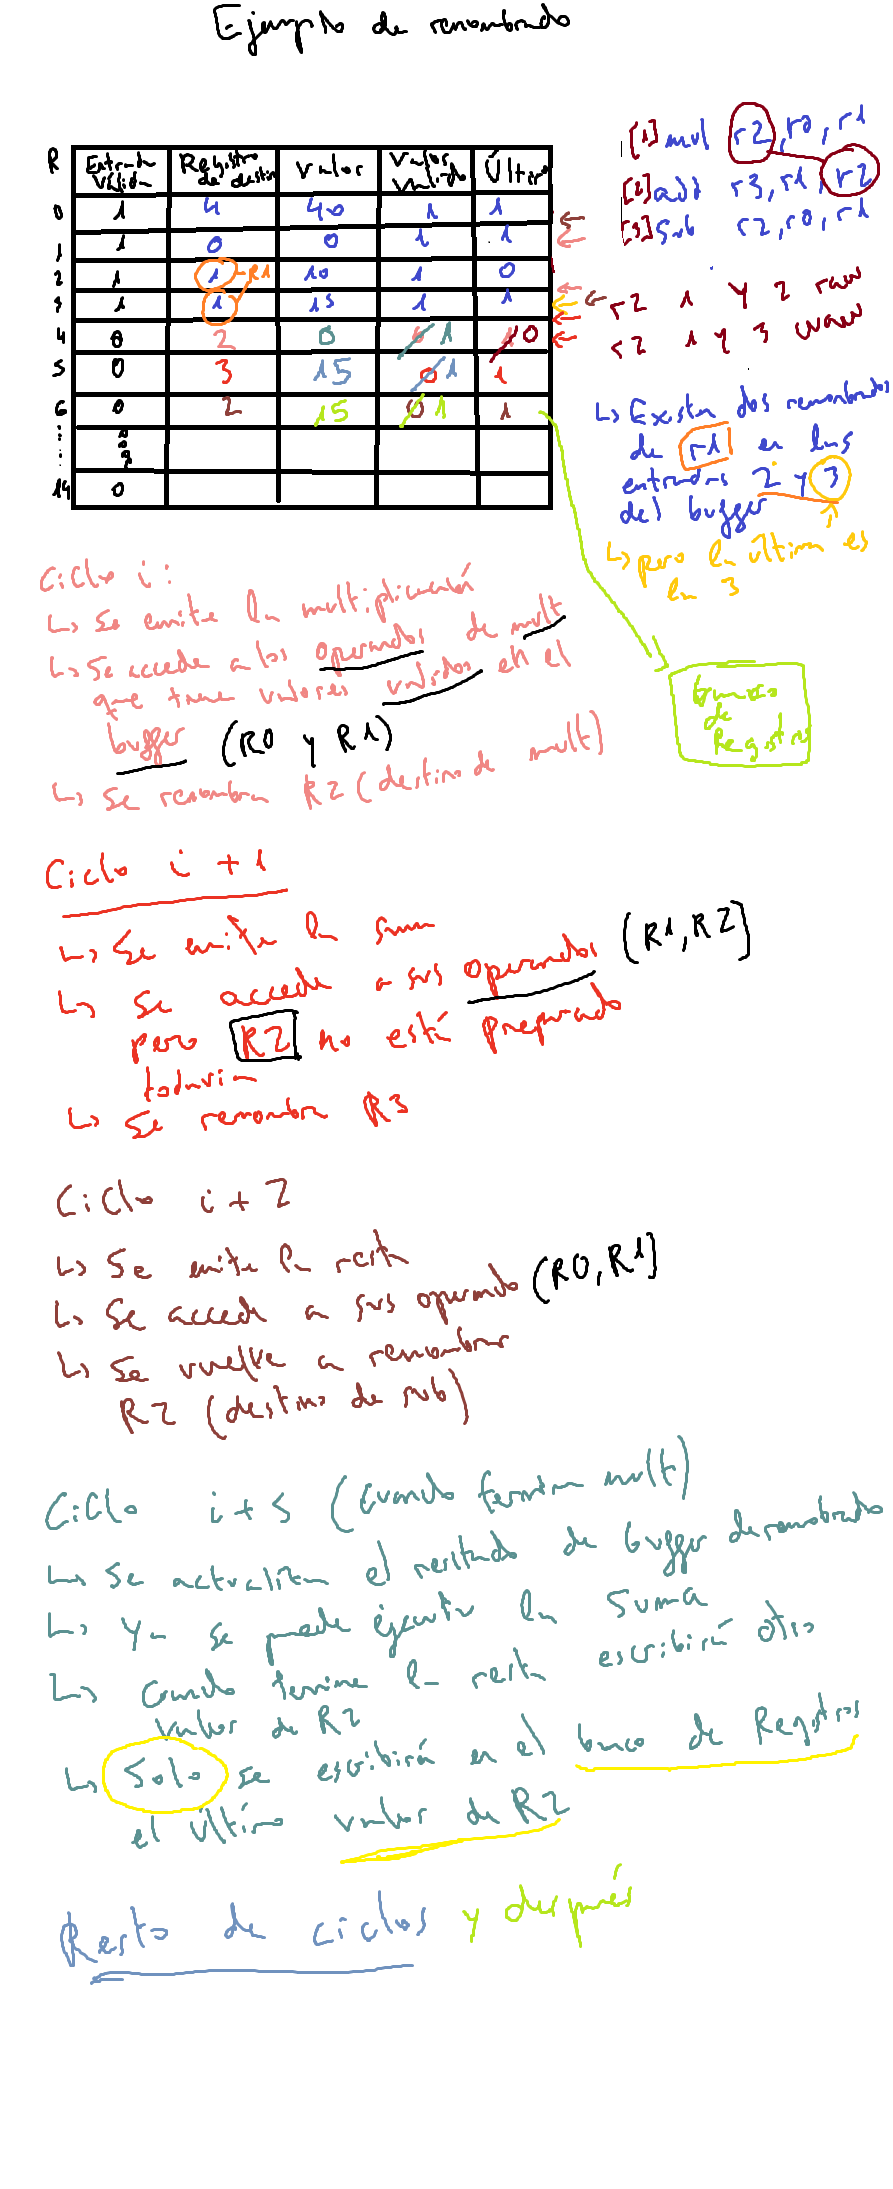 Ejemplo de renombrado
[1] mul r2, r0, r1
[2] add r3, r1, r2
[3] sub r2, r0, r1
R Entrada Válida Registro de destin Valor Valor Valido Último
0 1 4 40 1 1
1 1 0 0 1 1
2 1 1 10 1 0
3 1 1 15 1 1
4 0 2 0 0 1 1 0
5 0 3 15 0 1 1
6 0 2 15 0 1 1
14 0
R1
r2 1 y 2 raw
r2 1 y 3 waw
↳ Existen dos renombrados
de r1 en las
entradas 2 y 3
del buffer
↳ pero la última es
la 3
Banco
de
Registros
Ciclo i:
↳ Se emite la multiplicación
↳ Se accede a los operandos de mult
que tiene valores validos en el
buffer (R0 y R1)
↳ Se renombra R2 (destino de mult)
Ciclo i + 1
↳ Se emite la suma
↳ Se accede a sus operandos (R1, R2]
pero R2 no está preparado
todavia
↳ Se renombra R3
Ciclo i + 2
↳ Se emite la resta
↳ Se accede a sus operando (R0, R1]
↳ Se vuelve a renombrar
R2 (destino de sub)
Ciclo i + 5 (cuando termina mult)
↳ Se actualiza el resultado de buffer de renombrado
↳ Ya se puede ejecutar la suma
↳ Cuando termine la resta escribirá otro
valor de R2
↳ Solo se escribirá en el banco de Registros
el último valor de R2
Resto de ciclos y después